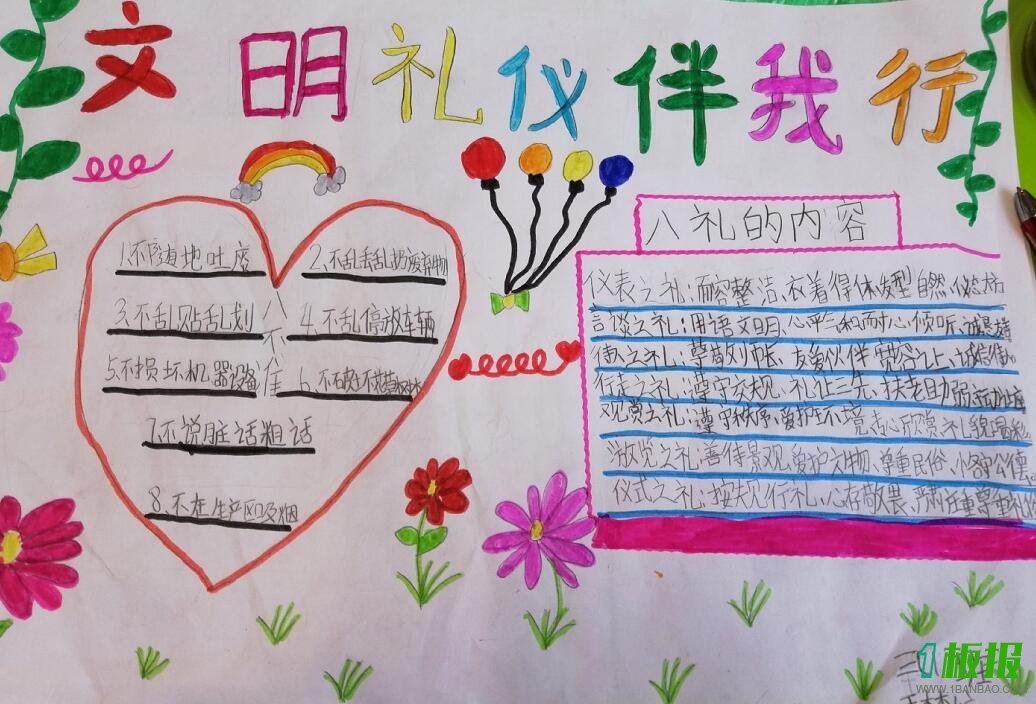 文明礼仪伴我行
1.不随地吐痰
2.不乱丢乱扔废弃物
3.不乱贴乱划
4.不乱停放车辆
5.不损坏机器设备
6.不
7.不说脏话粗话
8.不在生产区吸烟
八不准
八礼的内容
仪表之礼:面容整洁、衣着得体、发型自然、仪态
言谈之礼:用语文明、心平气和、耐心倾听、诚恳
待人之礼:尊敬师长、友爱伙伴、宽容礼让、诚信待
行走之礼:遵守交规、礼让三先、扶老助弱、主动让
观赏之礼:遵守秩序、爱护环境、专心欣赏、礼貌喝彩
游览之礼:善待景观、爱护文物、尊重民俗、恪守公德
仪式之礼:按规行礼、心存敬畏、严肃庄重、尊重礼
1板报
WWW.1BANBAO.COM